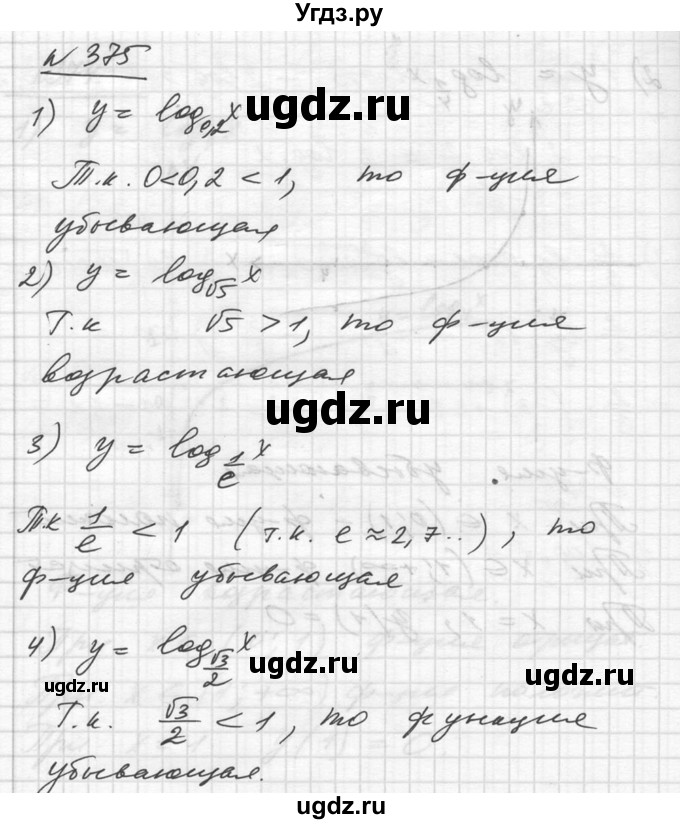 Угдз.ру
№ 375
1) y = log₀,₂x
ugdz.ru
Т.к. 0<0,2 < 1, то ф-ция
убывающая
2) y = log_√5 x
Т.к √5 > 1, то ф-ция
возрастающая
ugdz.ru
3) y = log_1/e x
Т.к 1/e < 1 (т.к. e ≈ 2,7..), то
ф-ция убывающая
4) y = log_√3/2 x
ugdz.ru
ugdz.ru
ugdz.ru
Т.к. √3/2 < 1, то функция
убывающая.
ugdz.ru
ugdz.ru